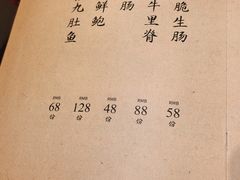 九肚鱼
鲜鲍
肠
牛里脊
脆生肠
RMB 68 份
RMB 128 份
RMB 48 份
RMB 88 份
RMB 58 份